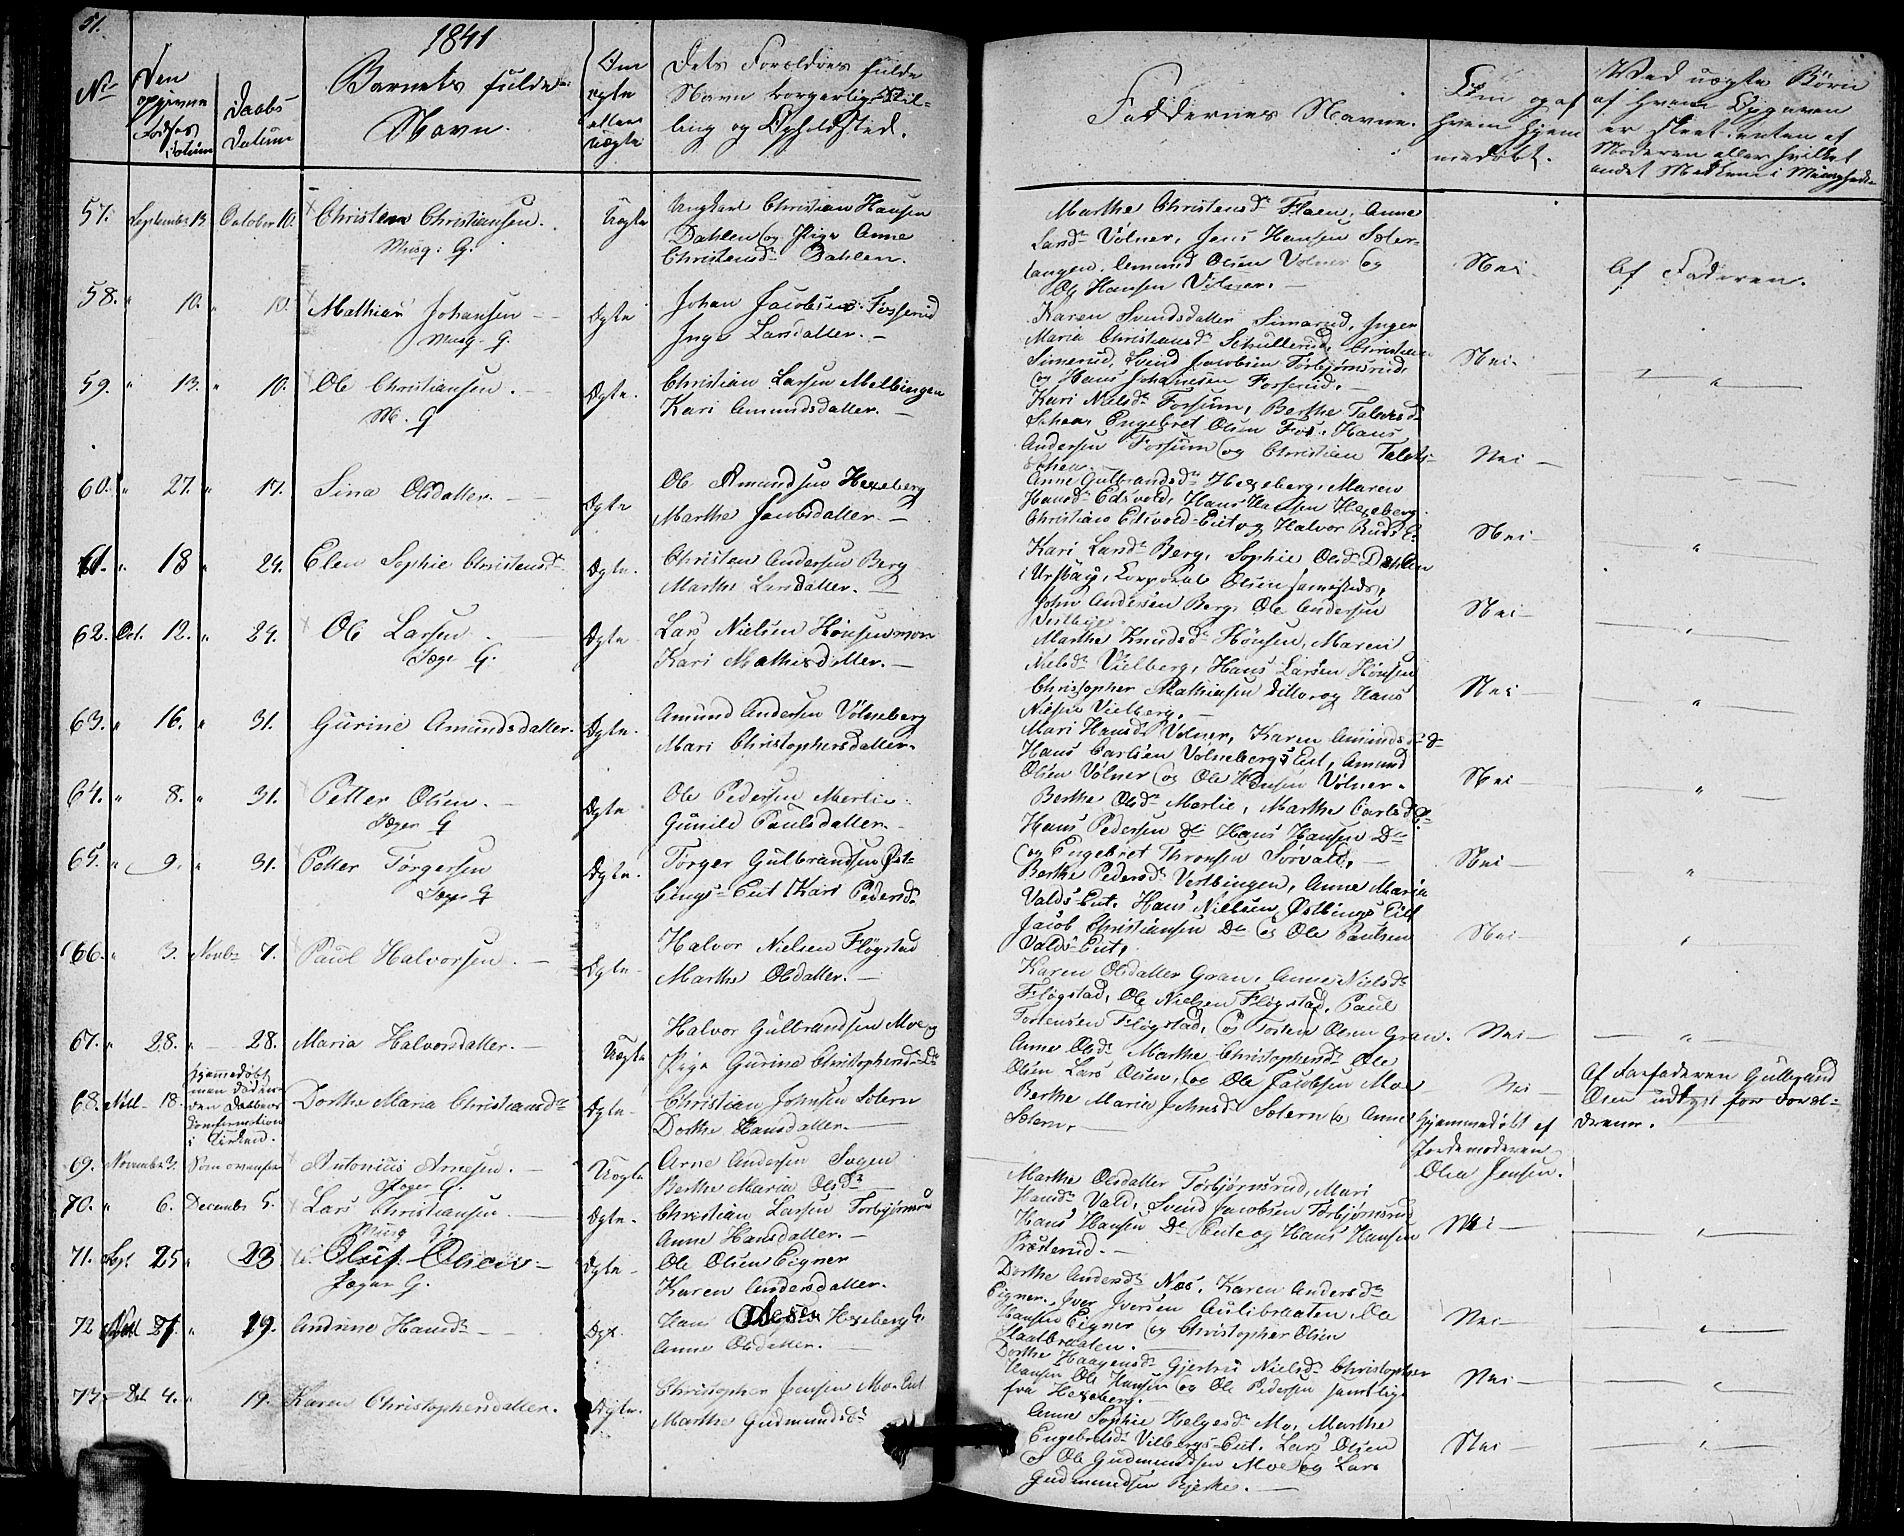 51.
1841
No
Den opgivne Fødsels Datum
Daabs Datum
Barnets fulde Navn.
Om ægte eller uægte
Dets Forældres fulde
Navn borgerlig Stil-
ling og Opholdsted.
Faddernes Navne.
Om og af
hvem hjem
medøbt.
Ved uægte Børn
af hvem Opgaven
er skeet enten af
Moderen eller hvilket
andet Medkom i Menighede
57. September 13. October 10. Christen Christiansen.
Musq: G.
Uægte
Ungkarl Christian Hansen
Dahlen og Pige Anne
Christensdr Dahlen.
Marthe Christensdr Flaen, Anne
Larsdr Völner, Jens Hansen Sæter-
tangen, Amund Olsen Volner og
Ole Hansen Völner.
Nei
Af Faderen.
58. " 10. " 10. Mathias Johansen
Musq. G.
Ægte
Johan Jacobsen Fosserud
Inge Larsdatter.
Karen Svendsdatter Simerud, Inger
Maria Christiansdr Schullerud, Christian
Simerud, Svend Jacobsen Torbjørnsrud
og Hans Johansen Fosserud.
Nei
"
59. " 13. " 10. Ole Christiansen.
M. G
Ægte.
Christian Larsen Melbingen
Kari Amundsdatter.
Kari Nielsdr Forsum, Berthe Talersd
Schea, Engebret Olsen Fos, Hans
Andersen Forsum og Christian Talets-
schea.
Nei
60. " 27. " 17. Lina Olsdatter.
Ægte
Ole Amundsen Hexeberg
Marthe Jacobsdatter.
Anne Gulbrandsdr Hexeberg, Maren
Hansdr Edsvold, Hans Hansen Hexeberg
Christian Edsvold Eiet og Halvor Ruds E.
Nei
"
61. " 18 " 24. Elen Sophie Christensdr
Ægte.
Christen Andersen Berg
Marthe Larsdatter.
Kari Larsdr Berg, Sophie Olsdr Dahlen
i Urskoug, Corporal Olsen samesteds,
John Andersen Berg, Ole Andersen
Nei
"
62. Oct. 12. " 24. Ole Larsen
Jæger G.
Ægte
Lars Nielsen Hönsenmon
Kari Mathisdatter.
Marthe Knudsdr Hönsen, Maren
Nielsdr Vielberg, Hans Larsen Hönsen
Christopher Mathiesen ditto og Hans
Nielsen Vielberg.
Nei
"
63. " 16. " 31. Gurine Amundsdatter.
Ægte.
Amund Andersen Völneberg
Mari Christophersdatter.
Mari Hansdr Volner, Karen Amundsdr do
Hans Carlsen Volnebergs Eiet, Amund
Olsen Völner og Ole Hansen Völner.
Nei
"
64. " 8. " 31. Petter Olsen.
Jæger G
Ægte
Ole Pedersen Merlie
Gunild Paulsdatter.
Berthe Olsdr Merlie, Marthe Carlsdr Do
Hans Pedersen do Hans Hansen Do
og Engebret Thronsen Sorvald.
Nei
"
65. " 9. " 31. Petter Torgersen
Jæger G
Ægte.
Torger Gulbrandsen Øst-
bings-Eiet Kari Pedersdr
Berthe Pedersdr Vestbingen, Anne Maria
Valds-Eiet, Hans Nielsen Østbings Eiet
Jacob Christiansen Do og Ole Paulsen
Valds-Eiet.
Nei
"
66. " 3. Novbr 7. Paul Halvorsen.
Ægte
Halvor Nielsen Flögstad
Marthe Olsdatter.
Karen Olsdatter Gran, Anne Nielsdr
Flögstad, Ole Nielsen Flögstad, Paul
Torstensen Flögstad, og Torsten Olsen Gran.
Nei
"
67. " 28. " 28. Maria Halvorsdatter.
Uægte
Halvor Gulbrandsen Moe og
Pige Gurine Christophersdr do
Anne Olsdr Marthe Christophersdr Ole
Olsen Lars Olsen, og Ole Jacobsen Moe
Nei
Af Farfaderen Gulbrand
Olsen udlagt for Foræl-
drene.
68. 18. Hjemmedøbt
men døde inden Daabens
Confirmation
i Kirken.
Dorthe Maria Christiansdr
Ægte
Christian Johnsen Sotern
Dorthe Hansdatter.
Berthe Maria Johnsdr Sotern og Anne
Sotern.
Hjemmedøbt af
Jordemoderen
Olea Jensen.
69. November 3. Som ovenfor Antonius Arnesen.
Jæger G.
Uægte
Arne Andersen Sogen
Berthe Maria Olsdr
70. " 6. Decembr 5. Lars Christiansen
Musq G.
Ægte.
Christian Larsen Torbjörnsrud
Anne Hansdatter.
Marthe Olsdatter Torbjørnsrud, Mari
Hansdr Vald, Svend Jacobsen Torbjørnsrud
Hans Hansen Do Eiet og Hans Hansen
Præsterud.
Nei
"
71. Sept 25 " 23 Oluf Olsen
Jæger G.
Ægte
Ole Olsen Eigner
Karen Andersdatter.
Dorthe Andersdr Næs, Karen Andersdr
Eigner, Iver Iversen Aulibraaten, Ole
Hansen Eigner og Christopher Olsen
Staalbraaten.
Nei
"
72 27. " 19. Andrine Hansdr
Ægt.
Hans Olsen Hexeberg E.
Anne Olsdatter.
Dorthe Haagensdr Gjertru Nielsdr Christopher
Hansen Ole Hansen og Ole Pedersen samtlige
fra Hexeberg.
Nei
"
73 Oct 4. " 19. Karen Christophersdatter.
Ægte.
Christopher Jensen Mo-Eiet
Marthe Gudmundsdr
Anne Sophie Helgesdr Mo, Marthe
Engebretsdr Vilbergs-Eiet, Lars Olsen
Ole Gudmundsen Moe og Lars
Gudmundsen Bjerke.
Nei
"